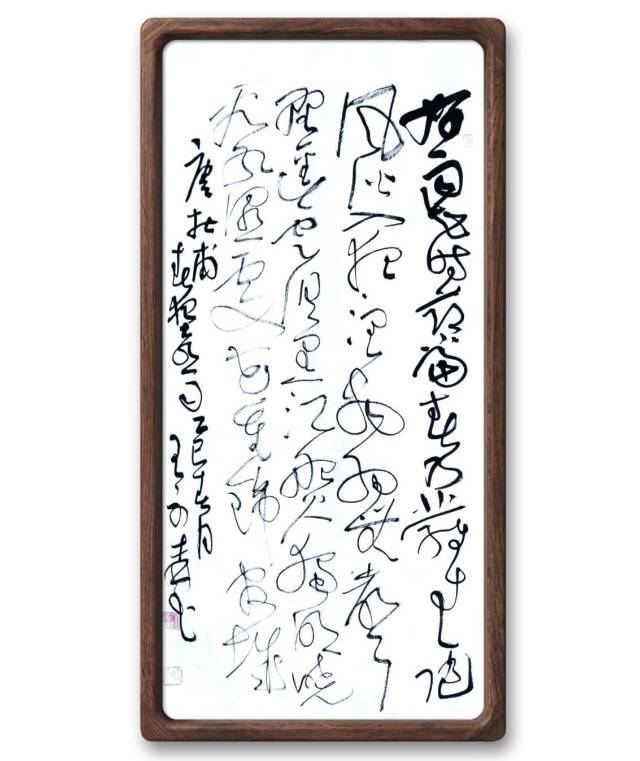 好雨知时节当春乃发生随
风潜入夜润物细无声
野径云俱黑江船火独明晓
看红湿处花重锦官城
唐杜甫春夜喜雨乙巳月